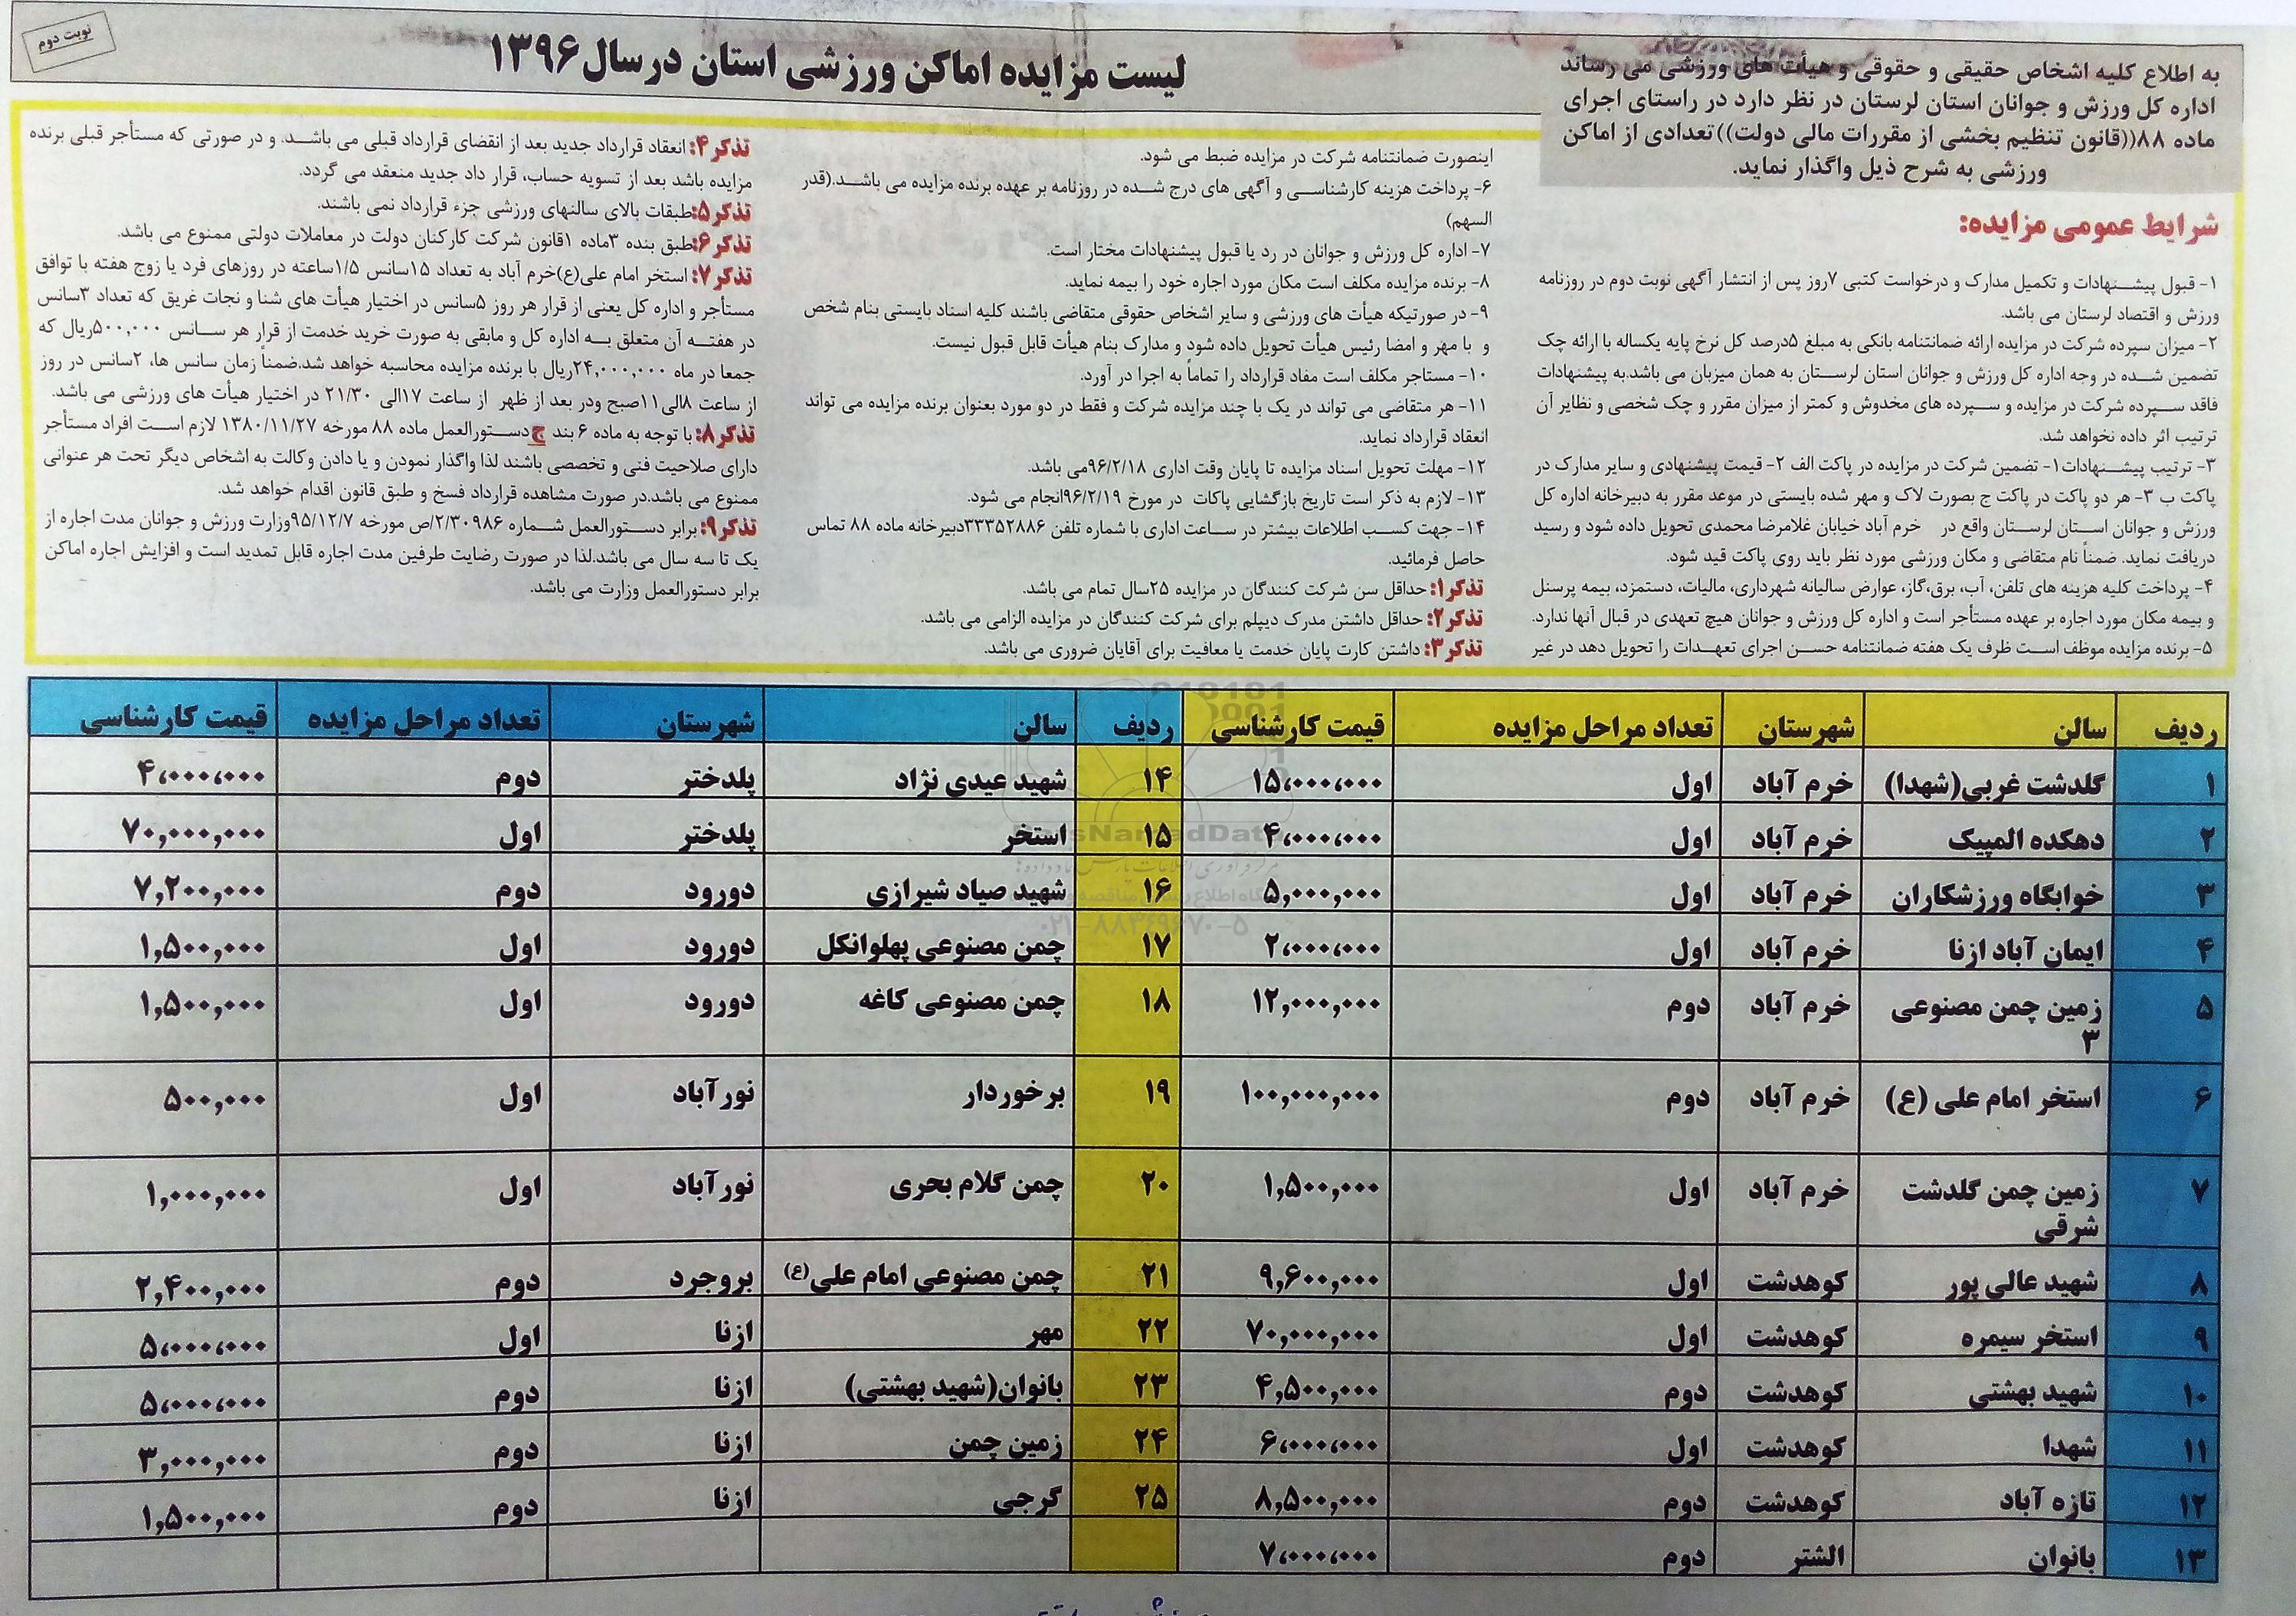 نوبت دوم
لیست مزایده اماکن ورزشی استان درسال ۱۳۹۶
به اطلاع کلیه اشخاص حقیقی و حقوقی و هیأت های ورزشی می رساند
اداره کل ورزش و جوانان استان لرستان در نظر دارد در راستای اجرای
ماده ۸۸((قانون تنظیم بخشی از مقررات مالی دولت))تعدادی از اماکن
ورزشی به شرح ذیل واگذار نماید.
شرایط عمومی مزایده:
۱- قبول پیشنهادات و تکمیل مدارک و درخواست کتبی ۷روز پس از انتشار آگهی نوبت دوم در روزنامه
ورزش و اقتصاد لرستان می باشد.
۲- میزان سپرده شرکت در مزایده ارائه ضمانتنامه بانکی به مبلغ ۵درصد کل نرخ پایه یکساله با ارائه چک
تضمین شده در وجه اداره کل ورزش و جوانان استان لرستان به همان میزبان می باشد.به پیشنهادات
فاقد سپرده شرکت در مزایده و سپرده های مخدوش و کمتر از میزان مقرر و چک شخصی و نظایر آن
ترتیب اثر داده نخواهد شد.
۳- ترتیب پیشنهادات۱- تضمین شرکت در مزایده در پاکت الف ۲- قیمت پیشنهادی و سایر مدارک در
پاکت ب ۳- هر دو پاکت در پاکت ج بصورت لاک و مهر شده بایستی در موعد مقرر به دبیرخانه اداره کل
ورزش و جوانان استان لرستان واقع در خرم آباد خیابان غلامرضا محمدی تحویل داده شود و رسید
دریافت نماید. ضمناً نام متقاضی و مکان ورزشی مورد نظر باید روی پاکت قید شود.
۴- پرداخت کلیه هزینه های تلفن، آب، برق،گاز، عوارض سالیانه شهرداری، مالیات، دستمزد، بیمه پرسنل
و بیمه مکان مورد اجاره بر عهده مستأجر است و اداره کل ورزش و جوانان هیچ تعهدی در قبال آنها ندارد.
۵- برنده مزایده موظف است ظرف یک هفته ضمانتنامه حسن اجرای تعهدات را تحویل دهد در غیر
اینصورت ضمانتنامه شرکت در مزایده ضبط می شود.
۶- پرداخت هزینه کارشناسی و آگهی های درج شده در روزنامه بر عهده برنده مزایده می باشد.(قدر
السهم)
۷- اداره کل ورزش و جوانان در رد یا قبول پیشنهادات مختار است.
۸- برنده مزایده مکلف است مکان مورد اجاره خود را بیمه نماید.
۹- در صورتیکه هیأت های ورزشی و سایر اشخاص حقوقی متقاضی باشند کلیه اسناد بایستی بنام شخص
و با مهر و امضا رئیس هیأت تحویل داده شود و مدارک بنام هیأت قابل قبول نیست.
۱۰- مستاجر مکلف است مفاد قرارداد را تماماً به اجرا در آورد.
۱۱- هر متقاضی می تواند در یک با چند مزایده شرکت و فقط در دو مورد بعنوان برنده مزایده می تواند
انعقاد قرارداد نماید.
۱۲- مهلت تحویل اسناد مزایده تا پایان وقت اداری ۹۶/۲/۱۸می باشد.
۱۳- لازم به ذکر است تاریخ بازگشایی پاکات در مورخ ۹۶/۲/۱۹انجام می شود.
۱۴- جهت کسب اطلاعات بیشتر در ساعت اداری با شماره تلفن ۳۳۳۵۲۸۸۶دبیرخانه ماده ۸۸ تماس
حاصل فرمائید.
تذکر۱: حداقل سن شرکت کنندگان در مزایده ۲۵سال تمام می باشد.
تذکر۲: حداقل داشتن مدرک دیپلم برای شرکت کنندگان در مزایده الزامی می باشد.
تذکر۳: داشتن کارت پایان خدمت یا معافیت برای آقایان ضروری می باشد.
تذکر۴: انعقاد قرارداد جدید بعد از انقضای قرارداد قبلی می باشد. و در صورتی که مستأجر قبلی برنده
مزایده باشد بعد از تسویه حساب، قرار داد جدید منعقد می گردد.
تذکر۵:طبقات بالای سالنهای ورزشی جزء قرارداد نمی باشند.
تذکر۶:طبق بنده ۳ماده ۱قانون شرکت کارکنان دولت در معاملات دولتی ممنوع می باشد.
تذکر۷: استخر امام علی(ع)خرم آباد به تعداد ۱۵سانس ۱/۵ساعته در روزهای فرد یا زوج هفته با توافق
مستأجر و اداره کل یعنی از قرار هر روز ۵سانس در اختیار هیأت های شنا و نجات غریق که تعداد ۳سانس
در هفته آن متعلق به اداره کل و مابقی به صورت خرید خدمت از قرار هر سانس ۵۰۰,۰۰۰ریال که
جمعا در ماه ۲۴,۰۰۰,۰۰۰ریال با برنده مزایده محاسبه خواهد شد.ضمناً زمان سانس ها، ۲سانس در روز
از ساعت ۸الی۱۱صبح ودر بعد از ظهر از ساعت ۱۷الی ۲۱/۳۰ در اختیار هیأت های ورزشی می باشد.
تذکر۸: با توجه به ماده ۶ بند ج دستورالعمل ماده ۸۸ مورخه ۱۳۸۰/۱۱/۲۷ لازم است افراد مستأجر
دارای صلاحیت فنی و تخصصی باشند لذا واگذار نمودن و یا دادن وکالت به اشخاص دیگر تحت هر عنوانی
ممنوع می باشد.در صورت مشاهده قرارداد فسخ و طبق قانون اقدام خواهد شد.
تذکر۹: برابر دستورالعمل شماره ۲/۳۰۹۸۶/ص مورخه ۹۵/۱۲/۷وزارت ورزش و جوانان مدت اجاره از
یک تا سه سال می باشد.لذا در صورت رضایت طرفین مدت اجاره قابل تمدید است و افزایش اجاره اماکن
برابر دستورالعمل وزارت می باشد.
ردیف سالن شهرستان تعداد مراحل مزایده قیمت کارشناسی ردیف سالن شهرستان تعداد مراحل مزایده قیمت کارشناسی
۱ گلدشت غربی(شهدا) خرم آباد اول ۱۵،۰۰۰،۰۰۰ ۱۴ شهید عیدی نژاد پلدختر دوم ۴،۰۰۰،۰۰۰
۲ دهکده المپیک خرم آباد اول ۴،۰۰۰،۰۰۰ ۱۵ استخر پلدختر اول ۷۰,۰۰۰,۰۰۰
۳ خوابگاه ورزشکاران خرم آباد اول ۵,۰۰۰,۰۰۰ ۱۶ شهید صیاد شیرازی دورود دوم ۷,۲۰۰,۰۰۰
۴ ایمان آباد ازنا خرم آباد اول ۲،۰۰۰،۰۰۰ ۱۷ چمن مصنوعی پهلوانکل دورود اول ۱,۵۰۰,۰۰۰
۵ زمین چمن مصنوعی خرم آباد دوم ۱۲,۰۰۰,۰۰۰ ۱۸ چمن مصنوعی کاغه دورود اول ۱,۵۰۰,۰۰۰
۳
۶ استخر امام علی (ع) خرم آباد دوم ۱۰۰,۰۰۰,۰۰۰ ۱۹ برخوردار نورآباد اول ۵۰۰,۰۰۰
۷ زمین چمن گلدشت خرم آباد اول ۱,۵۰۰,۰۰۰ ۲۰ چمن گلام بحری نورآباد اول ۱,۰۰۰,۰۰۰
شرقی
۸ شهید عالی پور کوهدشت اول ۹,۶۰۰,۰۰۰ ۲۱ چمن مصنوعی امام علی(ع) بروجرد دوم ۲,۴۰۰,۰۰۰
۹ استخر سیمره کوهدشت اول ۷۰,۰۰۰,۰۰۰ ۲۲ مهر ازنا اول ۵،۰۰۰،۰۰۰
۱۰ شهید بهشتی کوهدشت دوم ۴,۵۰۰,۰۰۰ ۲۳ بانوان(شهید بهشتی) ازنا دوم ۵،۰۰۰،۰۰۰
۱۱ شهدا کوهدشت اول ۶،۰۰۰،۰۰۰ ۲۴ زمین چمن ازنا دوم ۳,۰۰۰,۰۰۰
۱۲ تازه آباد کوهدشت دوم ۸,۵۰۰,۰۰۰ ۲۵ گرجی ازنا دوم ۱,۵۰۰,۰۰۰
۱۳ بانوان الشتر دوم ۷،۰۰۰،۰۰۰